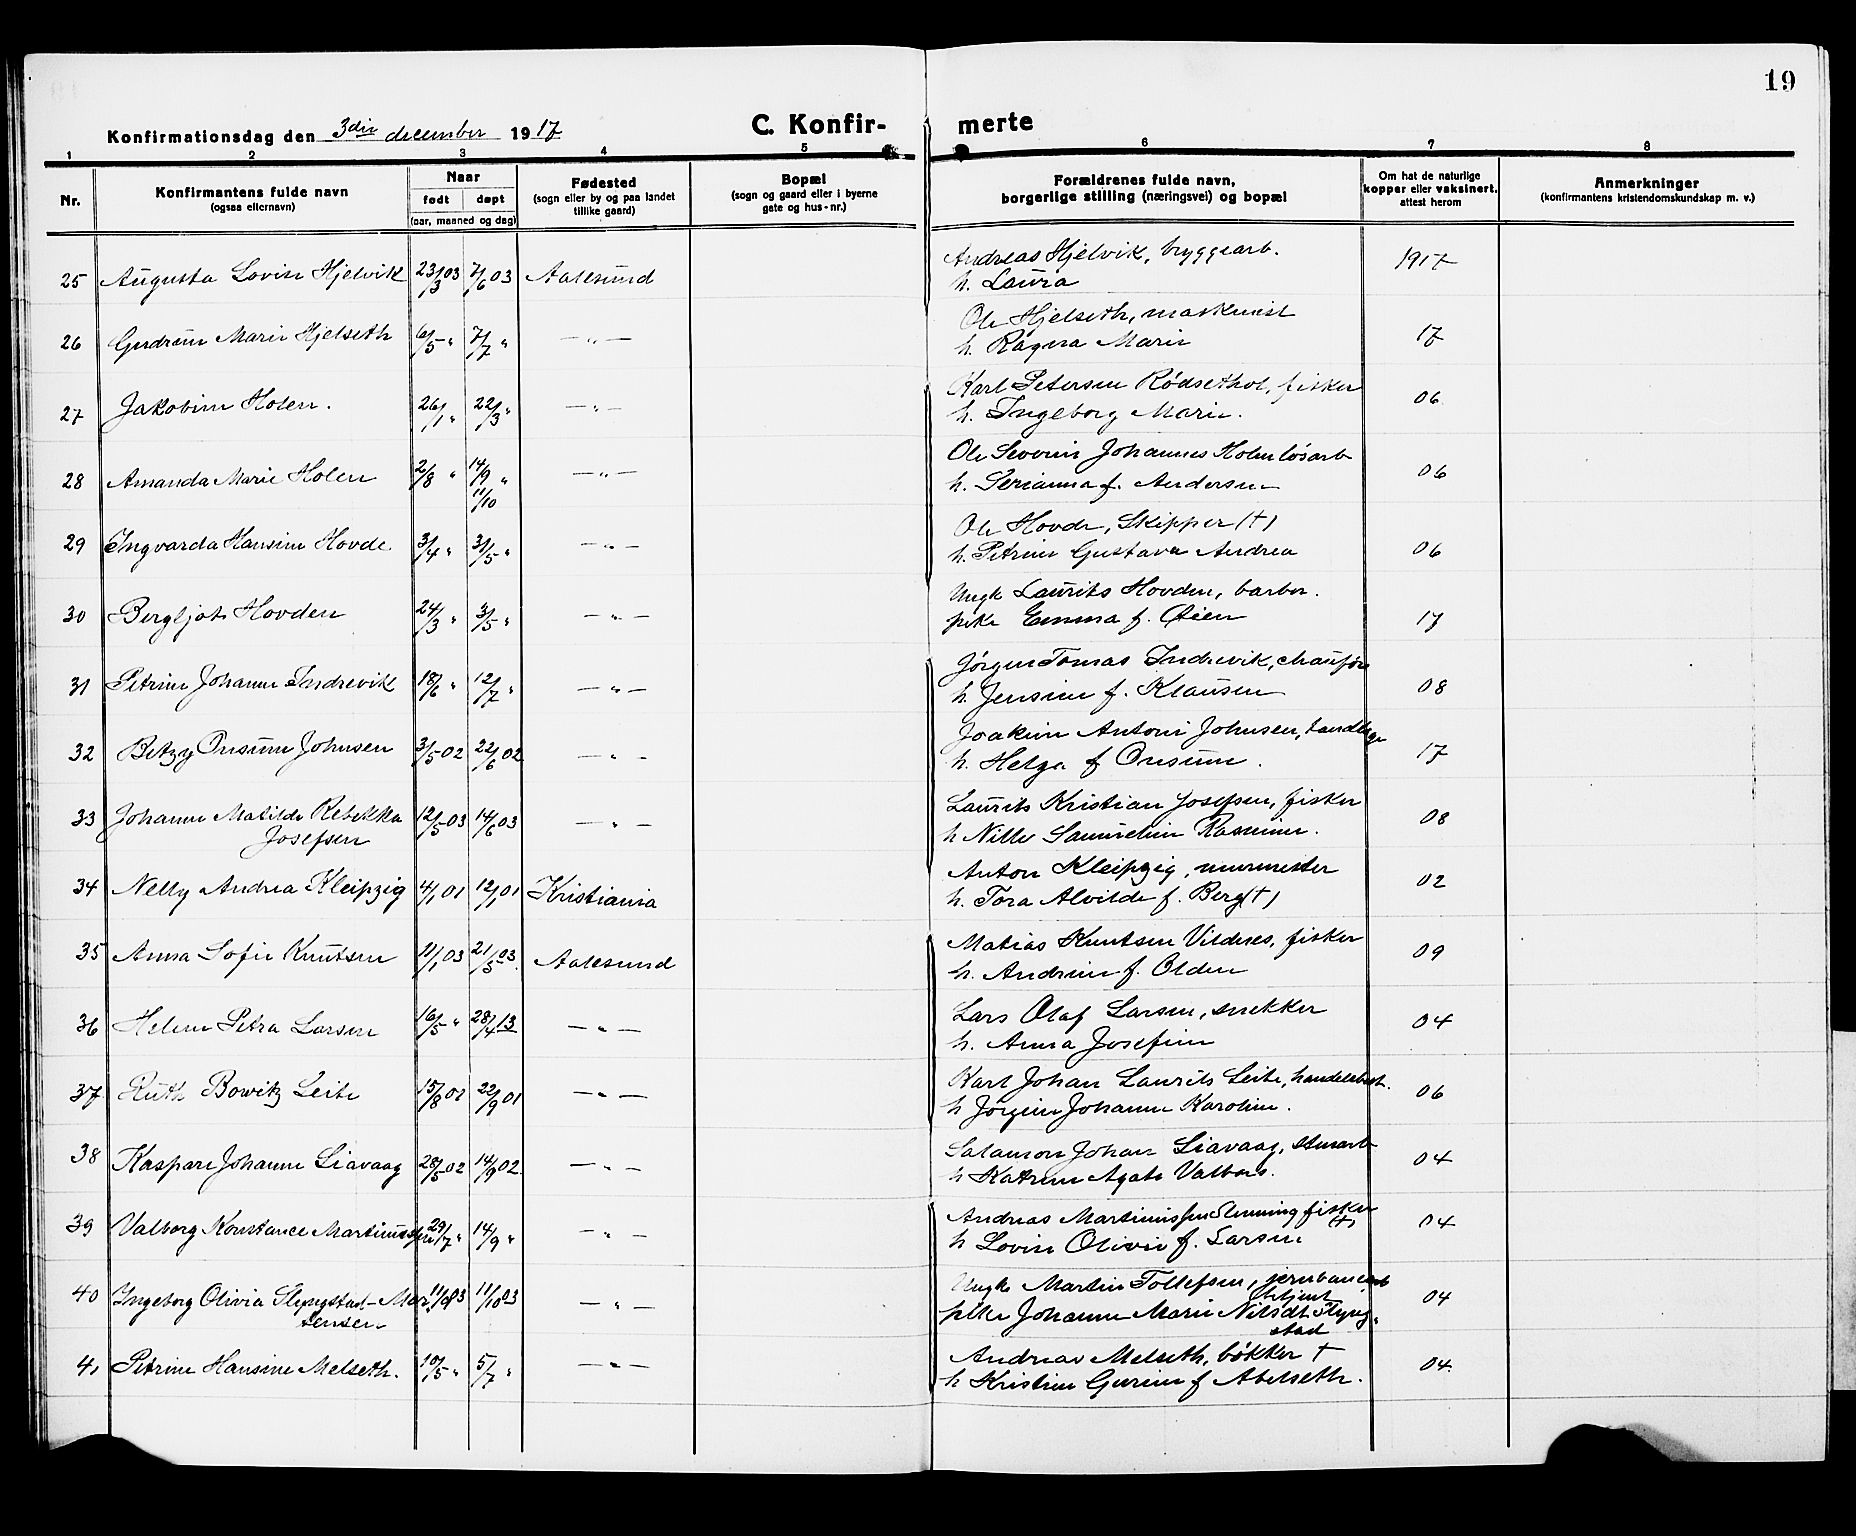 19
Konfirmationsdag den 3die december 1917
C. Konfir- merte
1 2 3 4 5 6 7 8
Nr.
Konfirmantens fulde navn
(ogsaa ellernavn)
Naar
født døpt
(aar, maaned og dag)
Fødested
(sogn eller by og paa landet
tillike gaard)
Bopæl
(sogn og gaard eller i byerne
gate og hus-nr.)
Forældrenes fulde navn,
borgerlige stilling (næringsvei) og bopæl
Om hat de naturlige
kopper eller vaksinert.
attest herom
Anmerkninger
(konfirmantens kristendomskundskap m. v.)
25 Augusta Lovise Hjelvik 23/3 03 7/6 03 Aalesund Andreas Hjelvik, bryggearb. 1917
h. Laura
26 Gudrun Marie Hjelseth 6/5 " 7/7 " — " — Ole Hjelseth, maskinist 17
h. Ragna Marie
27 Jakobine Holen. 26/1 " 22/3 " — " — Karl Petersen Rødsethol, fisker 06
h. Ingeborg Marie.
28 Amanda Marie Holen 2/8 " 14/9 " 11/10 — " — Ole Severin Johannes Holen løsarb 06
h. Serianna f. Andersen
29 Ingvarda Hansine Hovde. 3/4 " 31/5 " — " — Ole Hovde, Skipper (†) 06
h. Petrine Gustava Andrea
30 Bergljot Hovden 24/3 " 3/5 " — " — Ungk Laurits Hovden, barber. 17
pike Emma f. Øien
31 Petrine Johanne Indrevik 18/6 " 12/7 " — " — Jørgen Tomas Indrevik, chauffør 08
h. Jensine f. Klausen
32 Betzy Onsum Johnsen 3/5 02 22/6 02 — " — Joakim Antoni Johnsen, tandlæge 17
h. Helga f Onsum.
33 Johanne Matilde Rebekka 12/5 03 14/6 03 — " — Laurits Kristian Josefsen, fisker 08
Josefsen h Nille Samueline Rasmine.
34 Nelly Andrea Kleipzig 4/1 01 12/1 01 Kristiania Anton Kleipzig, murmester 02
h. Tora Alvilde f. Berg (†)
35 Anna Sofie Knutsen 11/1 03 21/5 03. Aalesund Matias Knutsen Vildnes, fisker 09
h. Andrine f. Olden
36 Helene Petra Larsen 16/5 " 28/4 13 — " — Lars Olaf Larsen, snekker 04
h. Anna Josefine
37 Ruth Bowitz Leite 15/8 01 22/9 01 — " — Karl Johan Laurits Leite, handelsbest. 06
h Jørgine Johanne Karoline.
38 Kaspare Johanne Liavaag 28/5 02 14/9 02. — " — Salamon Johan Liavaag, stuearb 04
h Katrine Agate
39 Valborg Konstance Martinussen 29/7 " 14/9 " — " — Andreas Martinussen fisker (†) 04
h Lovise Olivie f. Larsen
40 Ingeborg Olivia Slyngstad-Mar- 11/8 03 11/10 03 — " — Ungk Martin Tollefsen, jernbane 04
tensen betjent
pike Johanne Marie Nilsdt Slyng-
stad
41 Petrine Hansine Melseth. 10/5 " 5/7 " — " — Andreas Melseth, bøkker † 04.
h Kristine Gurine f Abelseth.